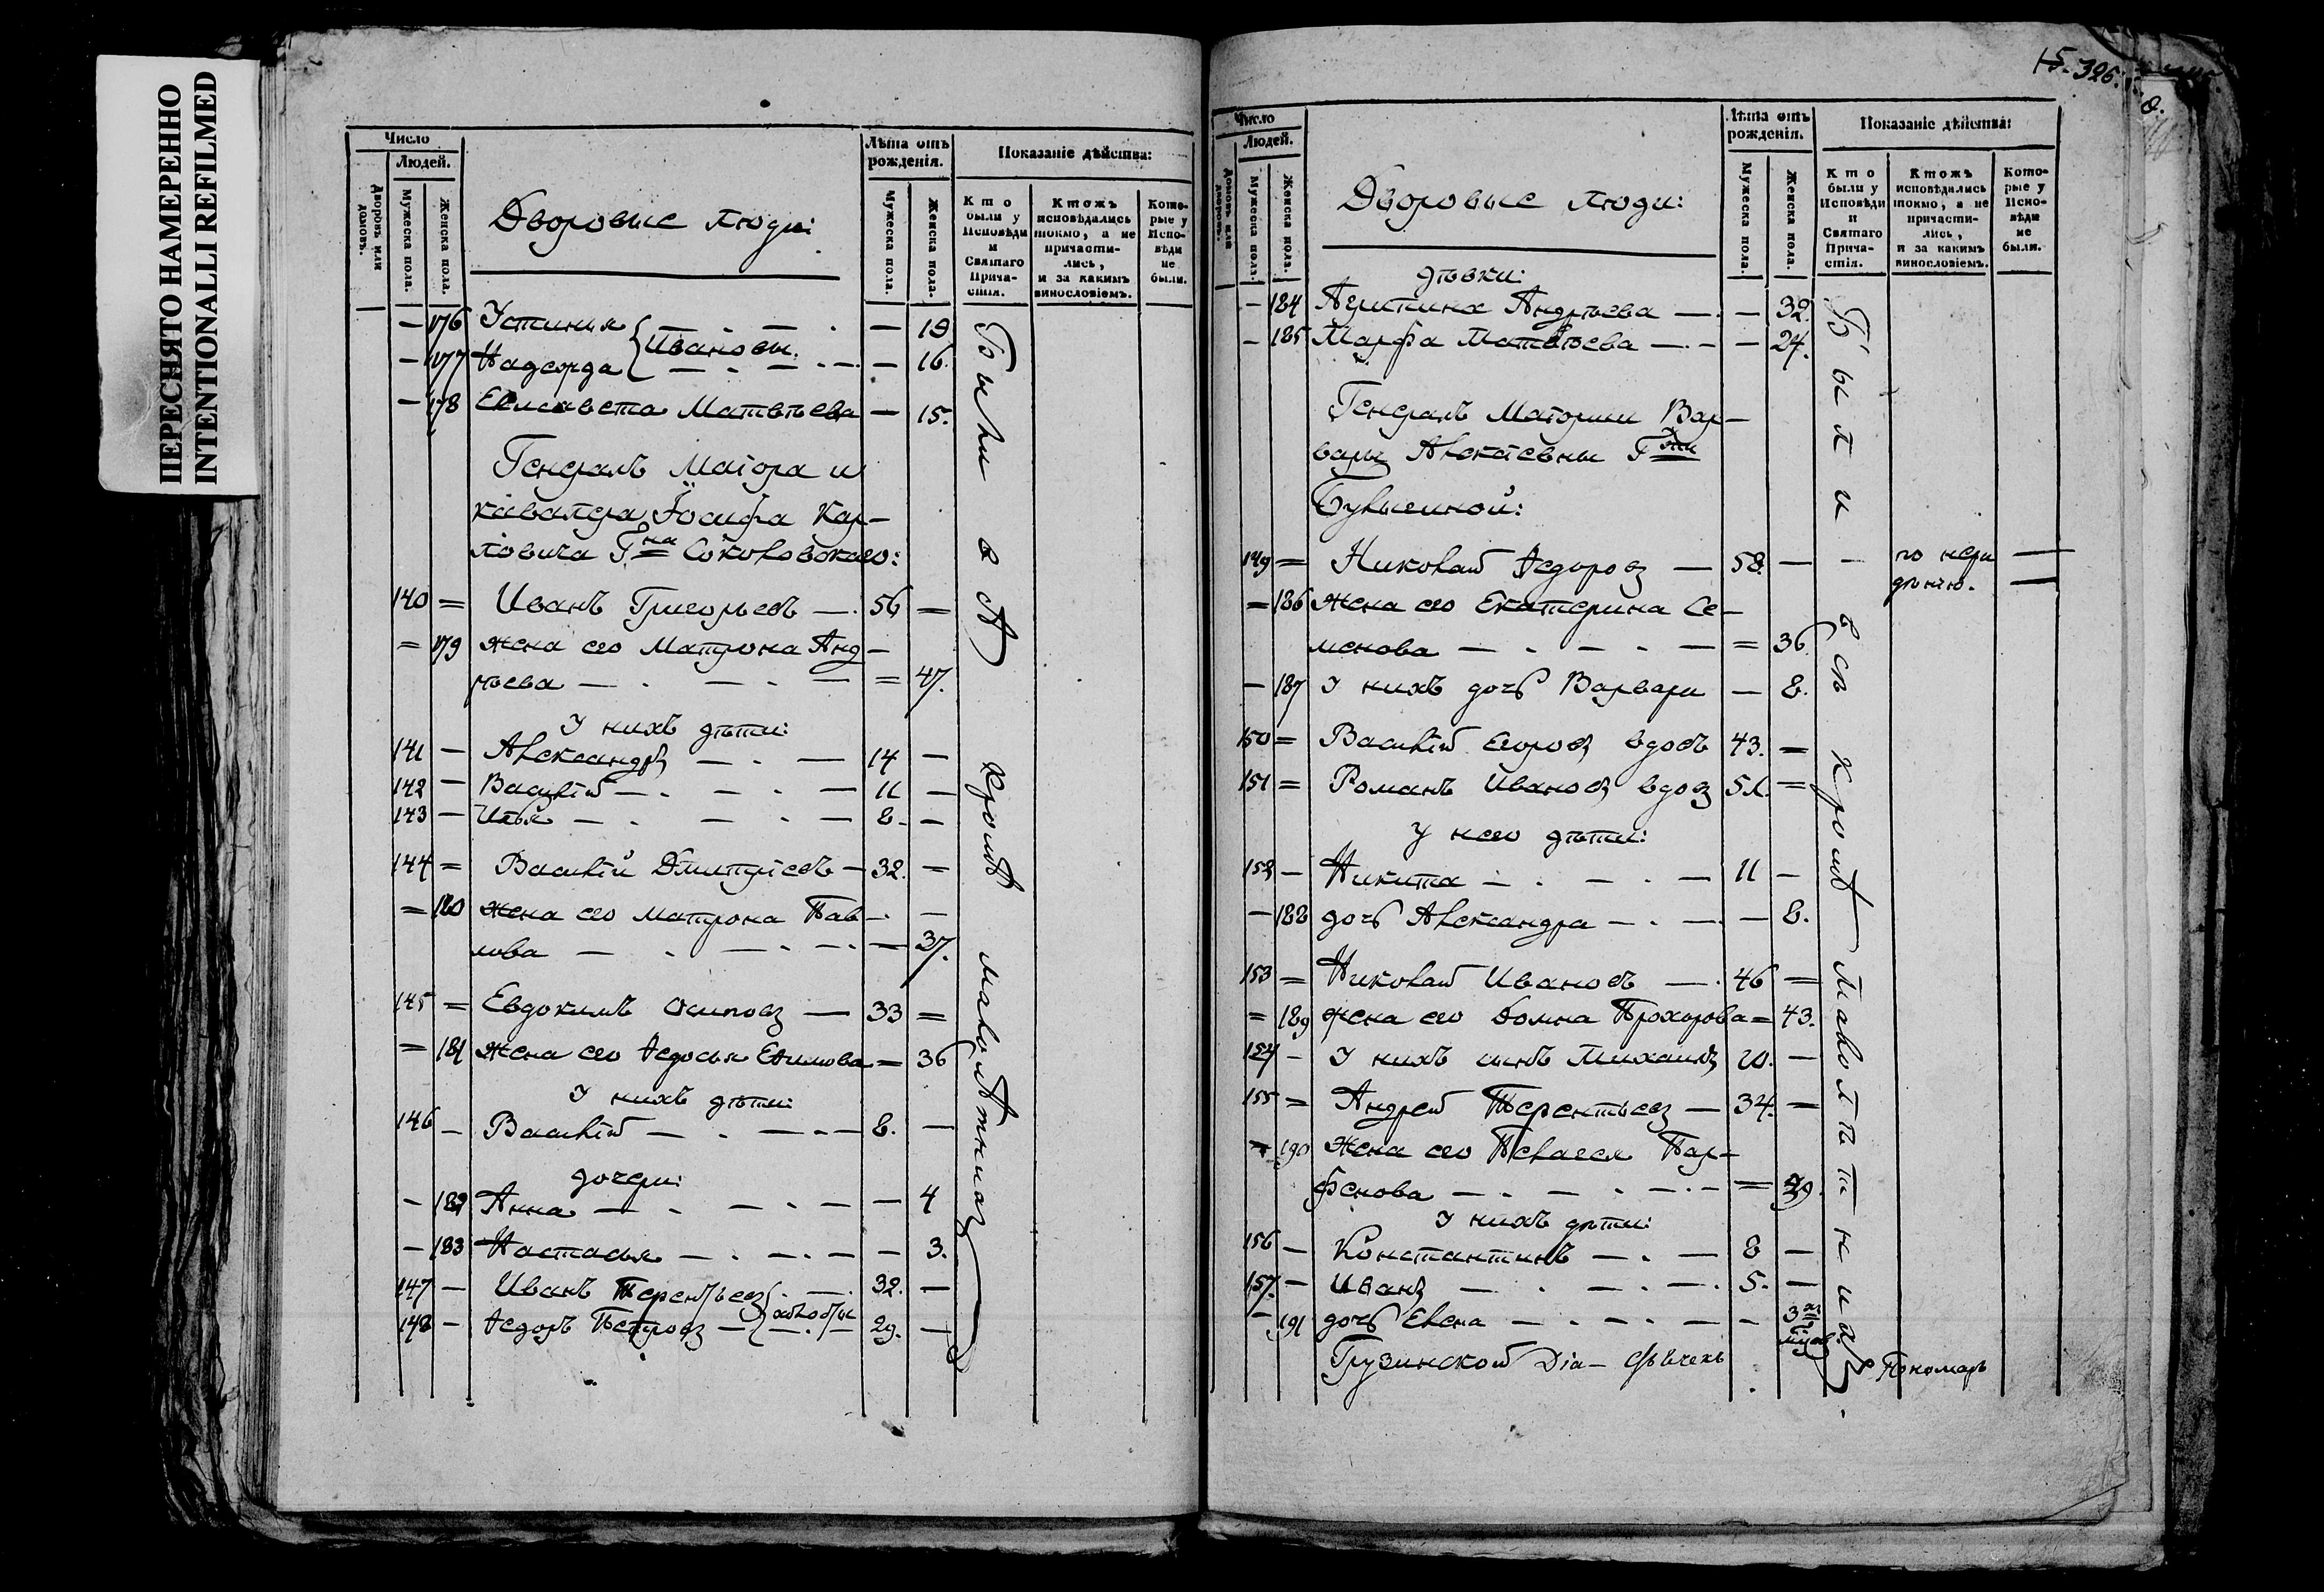 ПЕРЕСНЯТО НАМЕРЕННО
INTENTIONALLI REFILMED
Число
Людей.
Дворовъ или домовъ.
Мужеска пола.
Женска пола.
Дворовые люди:
Лѣта отъ рожденія.
Мужеска пола.
Женска пола.
Показаніе дѣйства:
Кто были у Исповѣди и Святаго Причастія.
Ктожъ исповѣдались токмо, а не причастились, и за какимъ винословіемъ.
Которые у Исповѣди не были.
— 176 Устинья — 19
Ивановы.
— 177 Надежда — 16.
— 178 Елисавета Матвѣева — 15.
Генералъ Маіора и
кавалера Іосифа Кар–
ловича Гна Соколовскаго:
140 = Иванъ Григорьевъ — 56 =
= 179 жена его Матрона Анд–
рѣева — = 47.
У нихъ дѣти:
141 — Александръ — 14 —
142 — Василій — 11 —
143 — Илья — 8. —
144 = Василій Дмитріевъ — 32. =
= 180 жена его Матрона Пав–
лова — 37.
145 = Евдокимъ Осиповъ — 33 =
= 181 жена его Ѳедосья Ефимова = 36
У нихъ дѣти:
146 — Василій — 8. —
дочери:
— 182 Анна — 4
— 183 Настасья — 3.
147 — Иванъ Терентьевъ 32. —
148 — Ѳедоръ Петровъ — холостые 29. —
Были всѣ кромѣ малолѣтнихъ
15. 326.
Число
Людей.
Домовъ или дворовъ.
Мужеска пола.
Женска пола.
Дворовые люди:
Лѣта отъ рожденія.
Мужеска пола.
Женска пола.
Показаніе дѣйства:
Кто были у Исповѣди и Святаго Причастія.
Ктожъ исповѣдались токмо, а не причастились, и за какимъ винословіемъ.
Которые у Исповѣди не были.
дѣвки:
— 184 Акулина Андрѣева — 32.
— 185 Марфа Матвѣева — 24.
Генералъ Маіорши Вар–
вары Алексіевны Гжи
149 = Николай Ѳедоровъ — 58. — по нера
дѣнію.
= 186 жена его Екатерина Се–
менова — = 36.
— 187 У нихъ дочь Варвара — 8.
150 = Василій Егоровъ вдовъ 43. =
151 = Романъ Ивановъ вдовъ 51. =
У него дѣти:
152 — Никита — 11 —
— 188 дочь Александра — 8.
153 = Николай Ивановъ — 46 =
= 189 жена его Домна Прохорова = 43.
154 — У нихъ сынъ Михаилъ 20. —
155 = Андрей Терентьевъ — 34. =
= 190 жена его Пелагея Пар–
фенова — = 29.
У нихъ дѣти:
156 — Константинъ — 8 —
157. — Иванъ — 5. —
— 191 дочь Елена — 3хъ
Были всѣ кромѣ малолѣтнихъ.
Грузинской Діа–
Пономарь